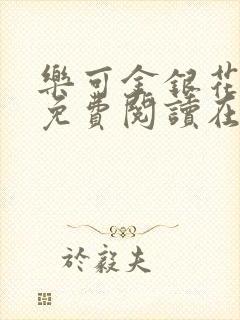 樂可金銀花
免費閱讀在
於毅夫